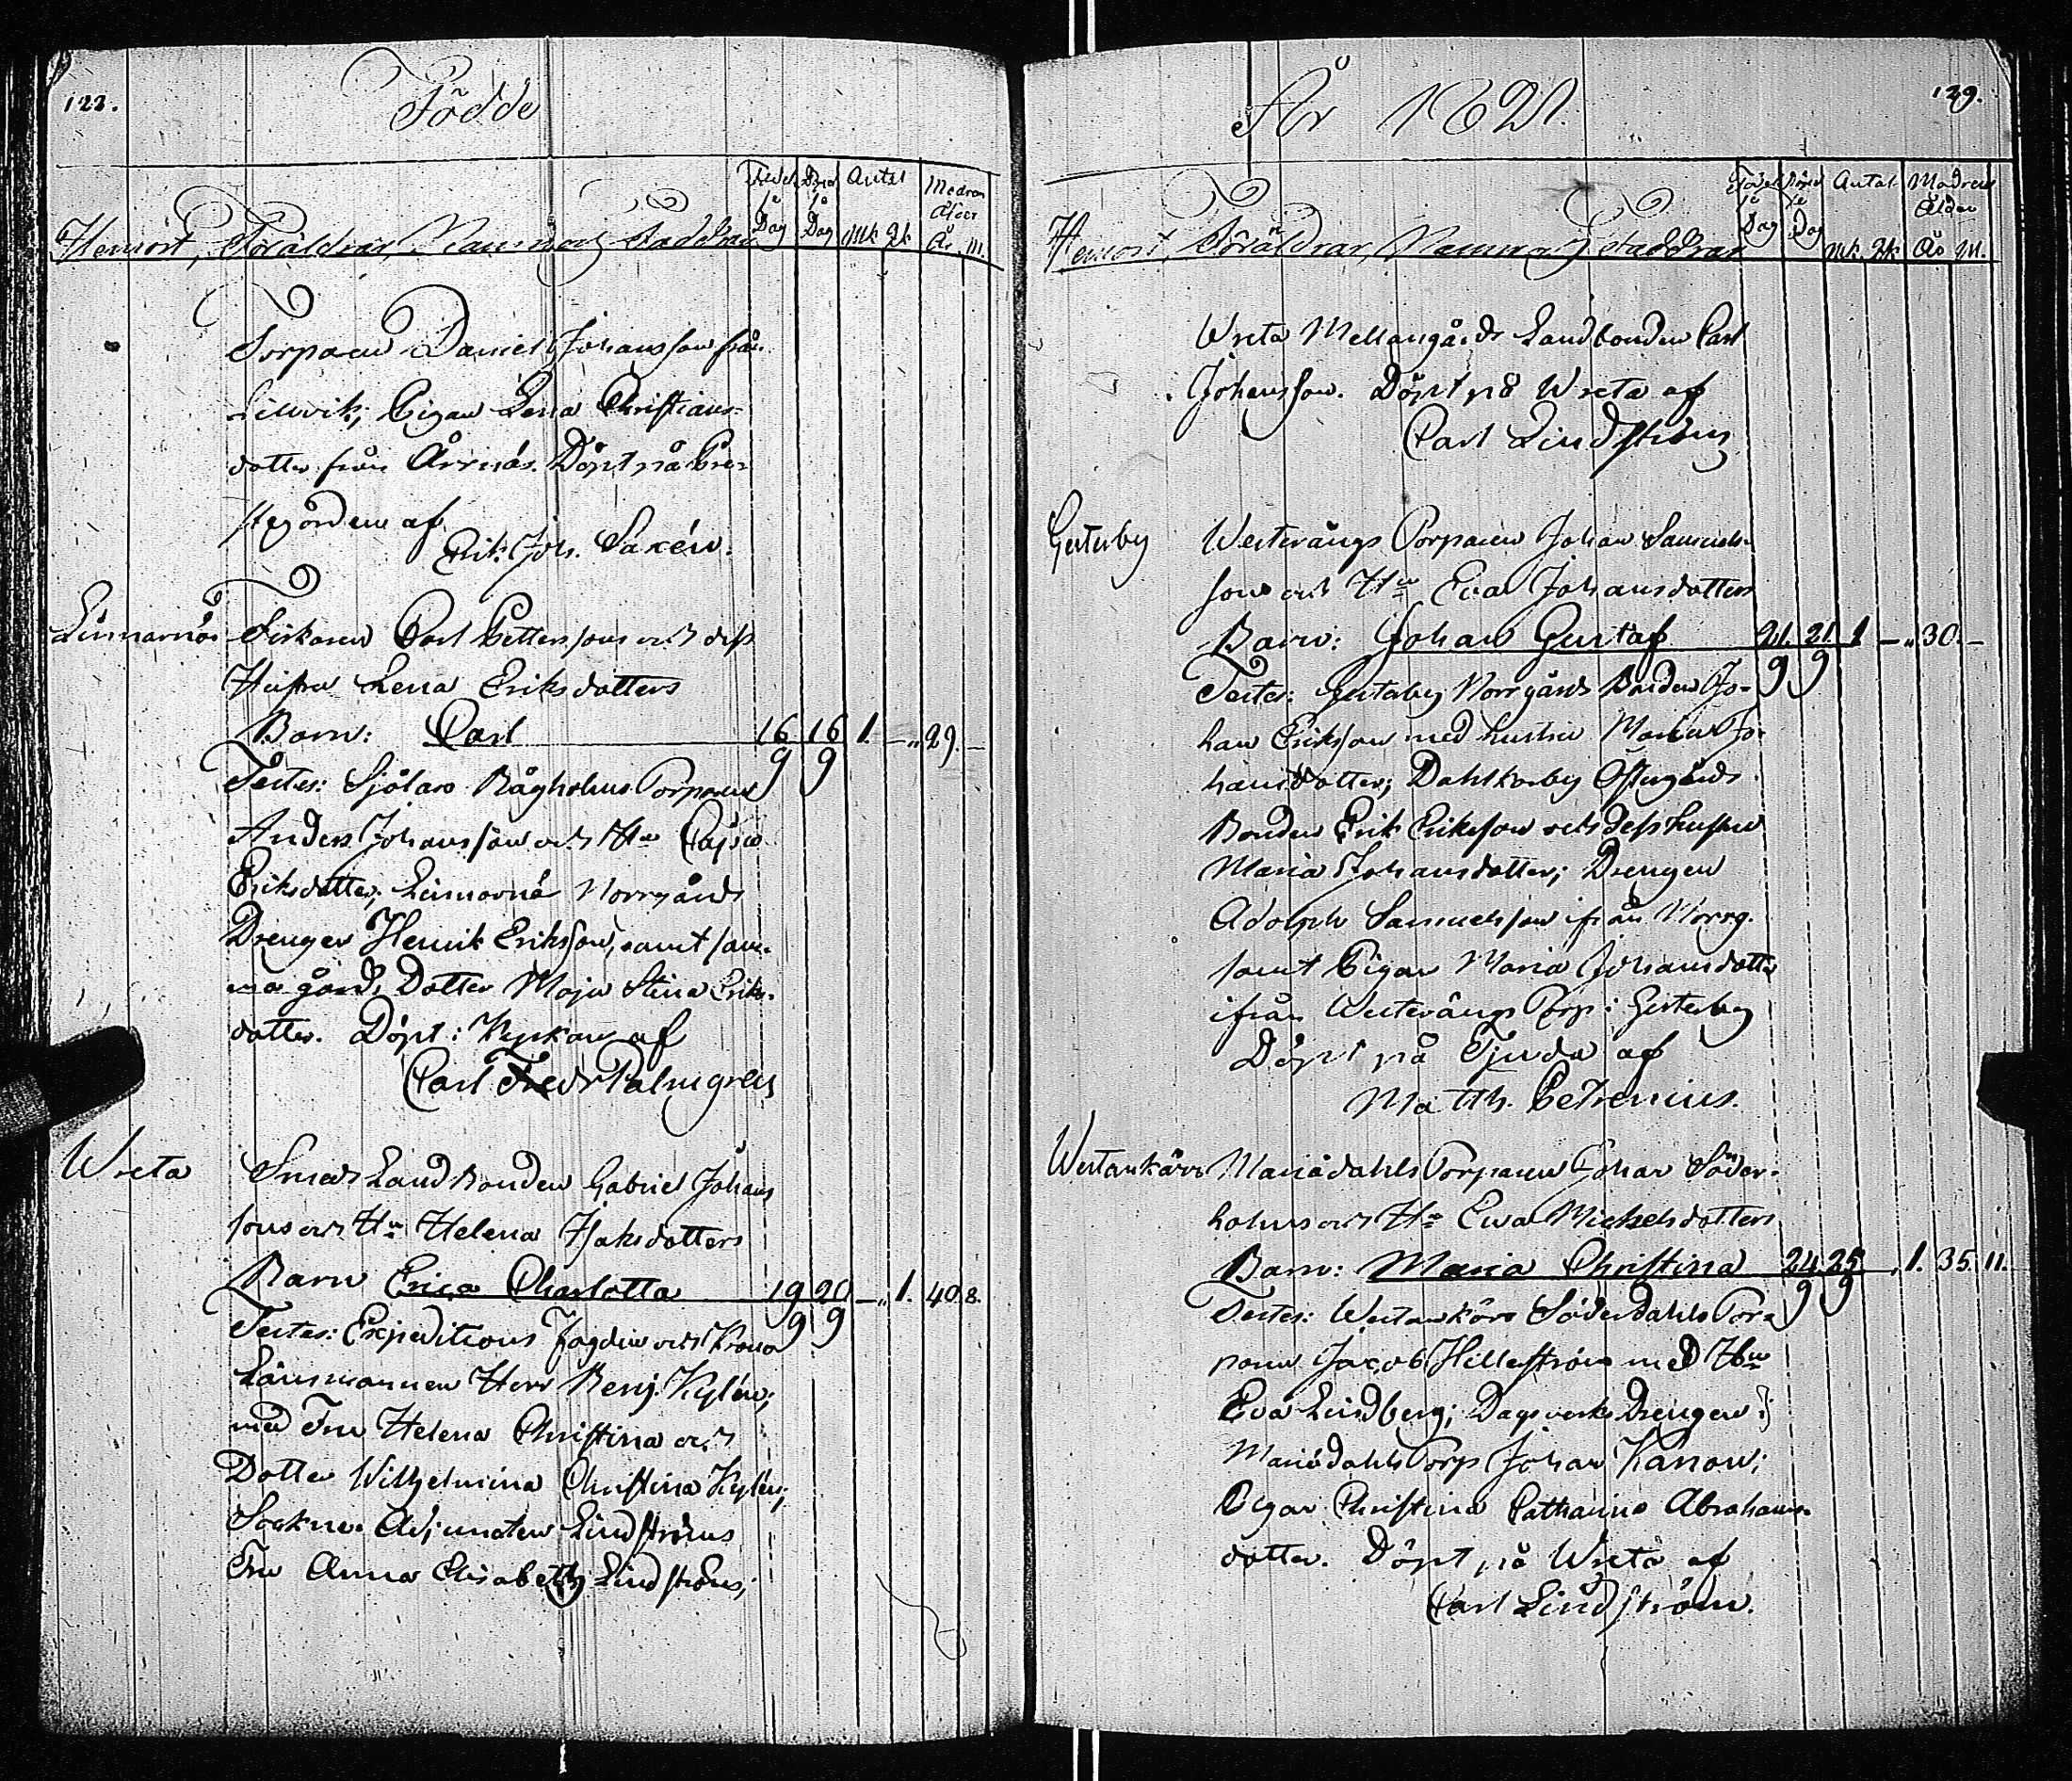 122.
Födde
Födels
Dag
Döpel
Dag
Antal
Mk Qk
Modrens
Ålder
År. M.
Hemort, Föräldrar, Namn och Faddrar
Torparen Daniel Johansson från
Lillvik; Pigan Lena Christians-
dotter från Årnäs. Döpt på Pre-
stgården af
Erik Joh. Saxén.
Linnarnäs Fiskaren Carl Pettersons och dess
Hustru Lena Eriksdotters
Barn: Carl 16 16 1. — „ 29. —
9 9
Testes: Sjölax Rågholms Torparen
Anders Johansson och Hu Cajsa
Eriksdotter; Linnarnäs Norrgårds
Drengen Henrik Eriksson, samt sam-
ma gårds Dotter Maja Stina Eriks-
dotter. Döpt i Kyrkan af
Carl Fredr Palmgren
Wreta Smeds Landbonden Gabriel Johans
sons och Hu Helena Isaksdotters
Barn Erica Charlotta 19 20 — „ 1. 40. 8.
9 9
Testes: Expeditions Fogden och Krono
Länsmannen Herr Benj. Kylén;
med Fru Helena Christina och
Dotter Wilhelmina Christina Kylén;
Sockne Adjuncten Lindströms
Fru Anna Elisabeth Lindström;
År 1821.
129.
Födels
Dag
Döpel
Dag
Antal
Mk. Qk.
Modrens
Ålder
År M.
Hemort, Föräldrar, Namn och Faddrar
Wreta Mellangårds Landbonden Carl
Johansson. Döpt på Wreta af
Carl Lindström
Gesterby Westerängs Torparen Johan Samuels-
sons och Hu Eva Johansdotters
Barn: Johan Gustaf 21. 21. 1 — „ 30. —
9 9
Testes: Gesterby Norrgårds Bonden Jo-
han Eriksson med hustru Maria Jo-
hansdotter; Dahlkarby Östergårds
Bonden Erik Eriksson och dess hustru
Maria Johansdotter; Drengen
Adolph Samuelsson ifrån Norrg.
samt Pigan Maria Johansdotter
ifrån Westerängs Torp i Gesterby
Döpt på Tjuda af
Matth. Petrenius.
Westankärr Mariedahls Torparen Johan Söder-
holms och Hu Ewa Michelsdotters
Barn: Maria Christina 24 25 „ 1. 35. 11.
9 9
Testes: Westankärr Söderdahls Tor-
paren Jacob Hellström med Hu
Eva Lindberg; Dagsverks Drengen i
Mariedahls Torp Johan Kanon;
Pigan Christina Catharina Abrahams-
dotter. Döpt på Wreta af
Carl Lindström.